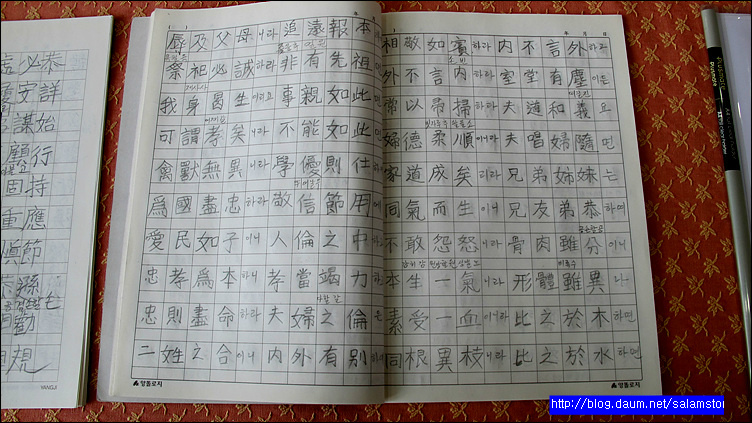 必恭
安詳
謀始
顧行
固持
重應
節
勸
規
YANGJI
年 月 日
辱及父母니라 追遠報本
祭祀必誠하라 非有先祖
我身曷生이리요 事親如此
可謂孝矣니라 不能如此
禽獸無異니라 學優則仕
爲國盡忠하라 敬信節用에
愛民如子이니 人倫之中
忠孝爲本하니 孝當竭力하
忠則盡命하라 夫婦之倫은
二姓之合이니 內外有別하
양돌로지
年 月 日
相敬如賓하라 內不言外하라
外不言內하라 室堂有塵이든
常以帚掃하라 夫道和義요
婦德柔順이니라 夫唱婦隨면
家道成矣리라 兄弟姉妹는
同氣而生이니 兄友弟恭하여
不敢怨怒니라 骨肉雖分이니
本生一氣니라 形體雖異나
素受一血이니라 比之於木하면
同根異枝니라 比之於水하면
양돌로지
http://blog.daum.net/salamstor